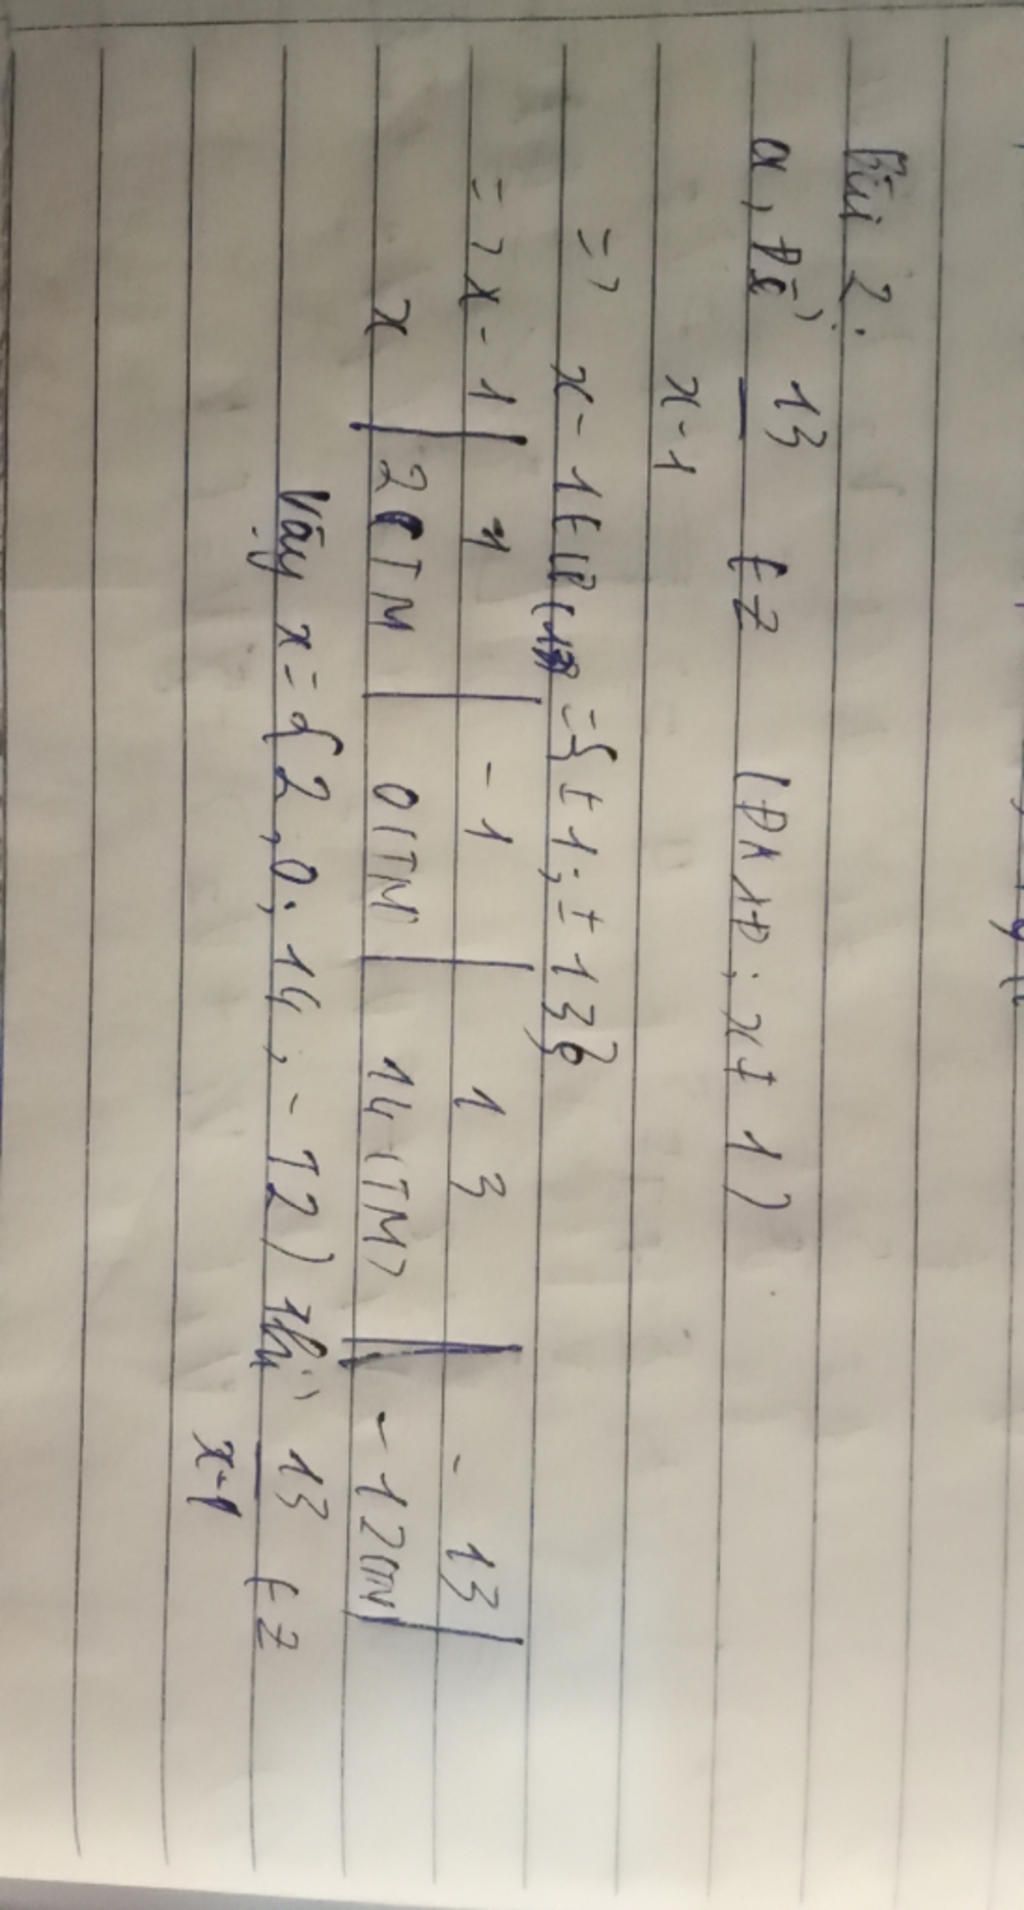 Bài 2:
a, Để 13 ∈ Z (ĐKXĐ: x ≠ 1)
x-1
=> x - 1 ∈ Ư(13) = {±1; ±13}
=> x - 1 | 1 | - 1 | 13 | - 13
x | 2(TM | 0(TM) | 14(TM) | - 12(TM)
Vậy x = {2, 0; 14, - 12) thì 13 ∈ Z
x-1